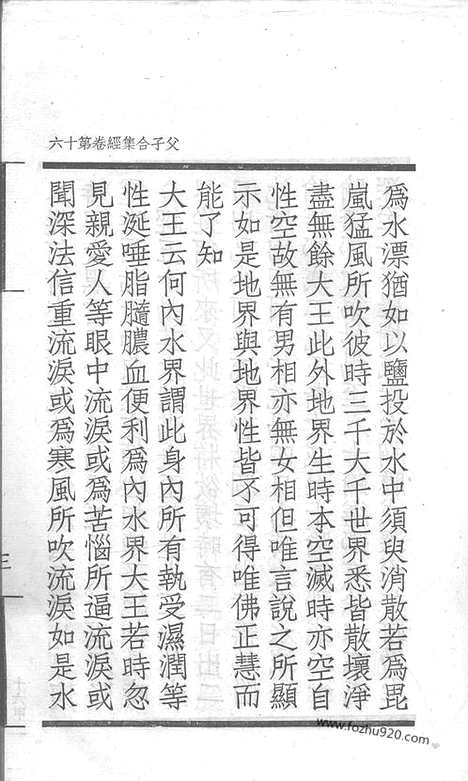 父子合集經卷第十六
爲水漂猶如以鹽投於水中須臾消散若爲毘
嵐猛風所吹彼時三千大千世界悉皆散壞淨
盡無餘大王此外地界生時本空滅時亦空自
性空故無有男相亦無女相但唯言說之所顯
示如是地界與地界性皆不可得唯佛正慧而
能了知
大王云何內水界謂此身內所有執受濕潤等
性涎唾脂髓膿血便利爲內水界大王若時忽
見親愛人等眼中流淚或爲苦惱所逼流淚或
聞深法信重流淚或爲寒風所吹流淚如是水
三
www.fozhu920.com